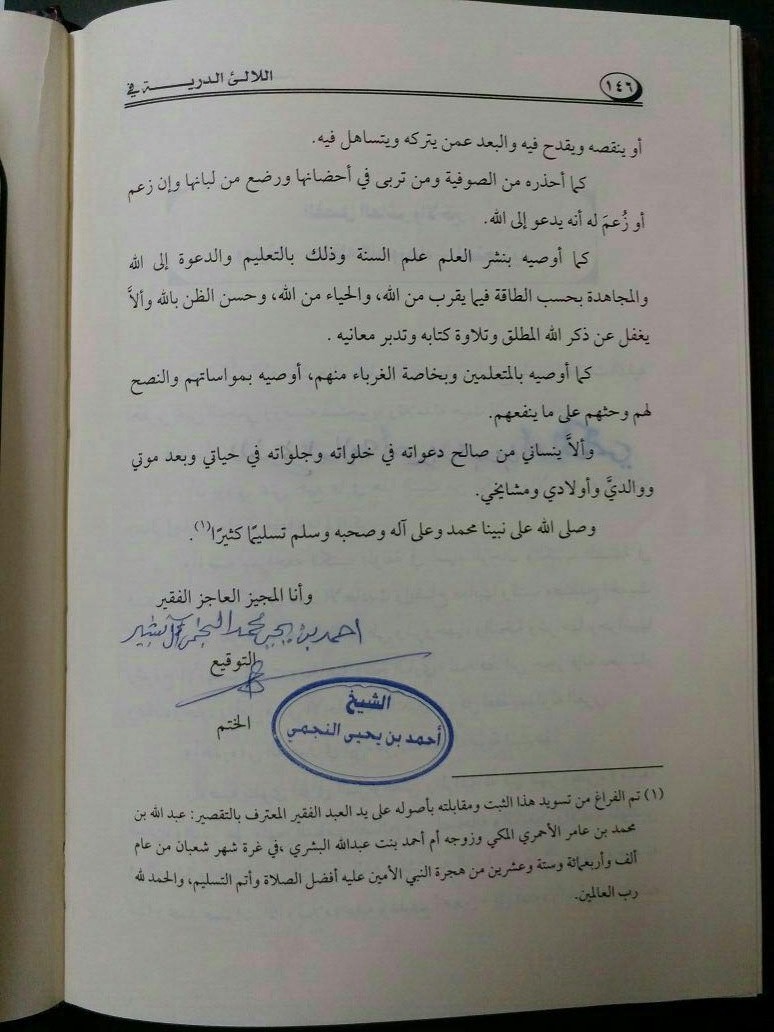 ١٤٦
اللآلئ الدريــــة في
أو ينقصه ويقدح فيه والبعد عمن يتركه ويتساهل فيه.
كما أحذره من الصوفية ومن تربى في أحضانها ورضع من لبانها وإن زعم
أو زُعمَ له أنه يدعو إلى الله.
كما أوصيه بنشر العلم علم السنة وذلك بالتعليم والدعوة إلى الله
والمجاهدة بحسب الطاقة فيما يقرب من الله، والحياء من الله، وحسن الظن بالله وألاَّ
يغفل عن ذكر الله المطلق وتلاوة كتابه وتدبر معانيه .
كما أوصيه بالمتعلمين وبخاصة الغرباء منهم، أوصيه بمواساتهم والنصح
لهم وحثهم على ما ينفعهم.
وألاَّ ينساني من صالح دعواته في خلواته وجلواته في حياتي وبعد موتي
ووالديَّ وأولادي ومشايخي.
وصلى الله على نبينا محمد وعلى آله وصحبه وسلم تسليمًا كثيرًا(١).
وأنا المجيز العاجز الفقير
احمد بن يحيى محمد النجمي آل شبير
التوقيع
الختم
الشيخ
أحمد بن يحيى النجمي
(١) تم الفراغ من تسويد هذا الثبت ومقابلته بأصوله على يد العبد الفقير المعترف بالتقصير: عبد الله بن
محمد بن عامر الأحمري المكي وزوجه أم أحمد بنت عبدالله البشري ،في غرة شهر شعبان من عام
ألف وأربعمائة وستة وعشرين من هجرة النبي الأمين عليه أفضل الصلاة وأتم التسليم، والحمد لله
رب العالمين.